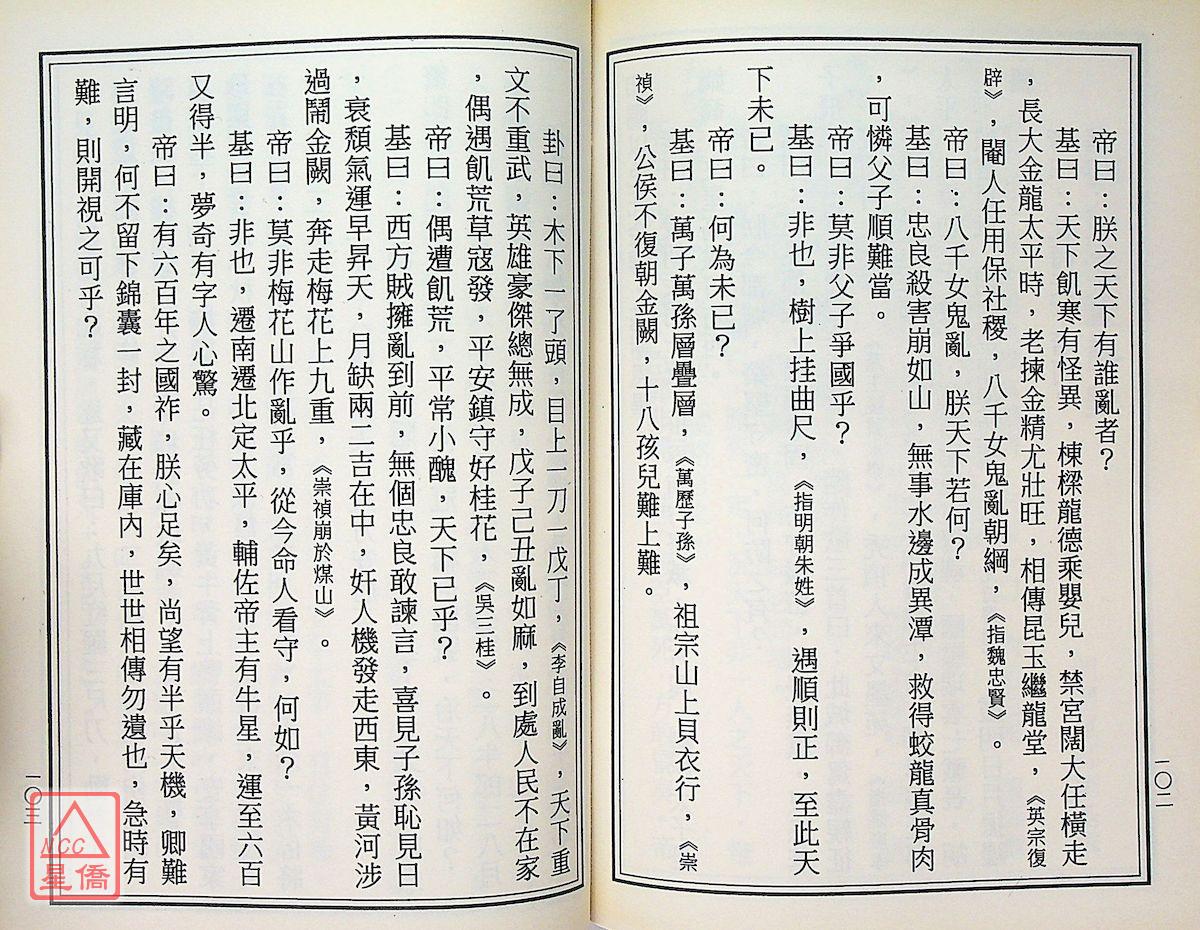 帝曰：朕之天下有誰亂者？
基曰：天下飢寒有怪異，棟樑龍德乘嬰兒，禁宮闊大任橫走
，長大金龍太平時，老揀金精尤壯旺，相傳昆玉繼龍堂，《英宗復
辟》，閹人任用保社稷，八千女鬼亂朝綱，《指魏忠賢》。
帝曰：八千女鬼亂，朕天下若何？
基曰：忠良殺害崩如山，無事水邊成異潭，救得蛟龍真骨肉
，可憐父子順難當。
帝曰：莫非父子爭國乎？
基曰：非也，樹上挂曲尺，《指明朝朱姓》，遇順則正，至此天
下未已。
帝曰：何為未已？
基曰：萬子萬孫層疊層，《萬歷子孫》，祖宗山上貝衣行，《崇
禎》，公侯不復朝金闕，十八孩兒難上難。
一〇二
卦曰：木下一了頭，目上一刀一戊丁，《李自成亂》，天下重
文不重武，英雄豪傑總無成，戊子己丑亂如麻，到處人民不在家
，偶遇飢荒草寇發，平安鎮守好桂花，《吳三桂》。
帝曰：偶遭飢荒，平常小醜，天下已乎？
基曰：西方賊擁亂到前，無個忠良敢諫言，喜見子孫恥見日
，衰頹氣運早昇天，月缺兩二吉在中，奸人機發走西東，黃河涉
過鬧金闕，奔走梅花上九重，《崇禎崩於煤山》。
帝曰：莫非梅花山作亂乎，從今命人看守，何如？
基曰：非也，遷南遷北定太平，輔佐帝主有牛星，運至六百
又得半，夢奇有字人心驚。
帝曰：有六百年之國祚，朕心足矣，尚望有半乎天機，卿難
言明，何不留下錦囊一封，藏在庫內，世世相傳勿遺也，急時有
難，則開視之可乎？
一〇三
NCC
星僑